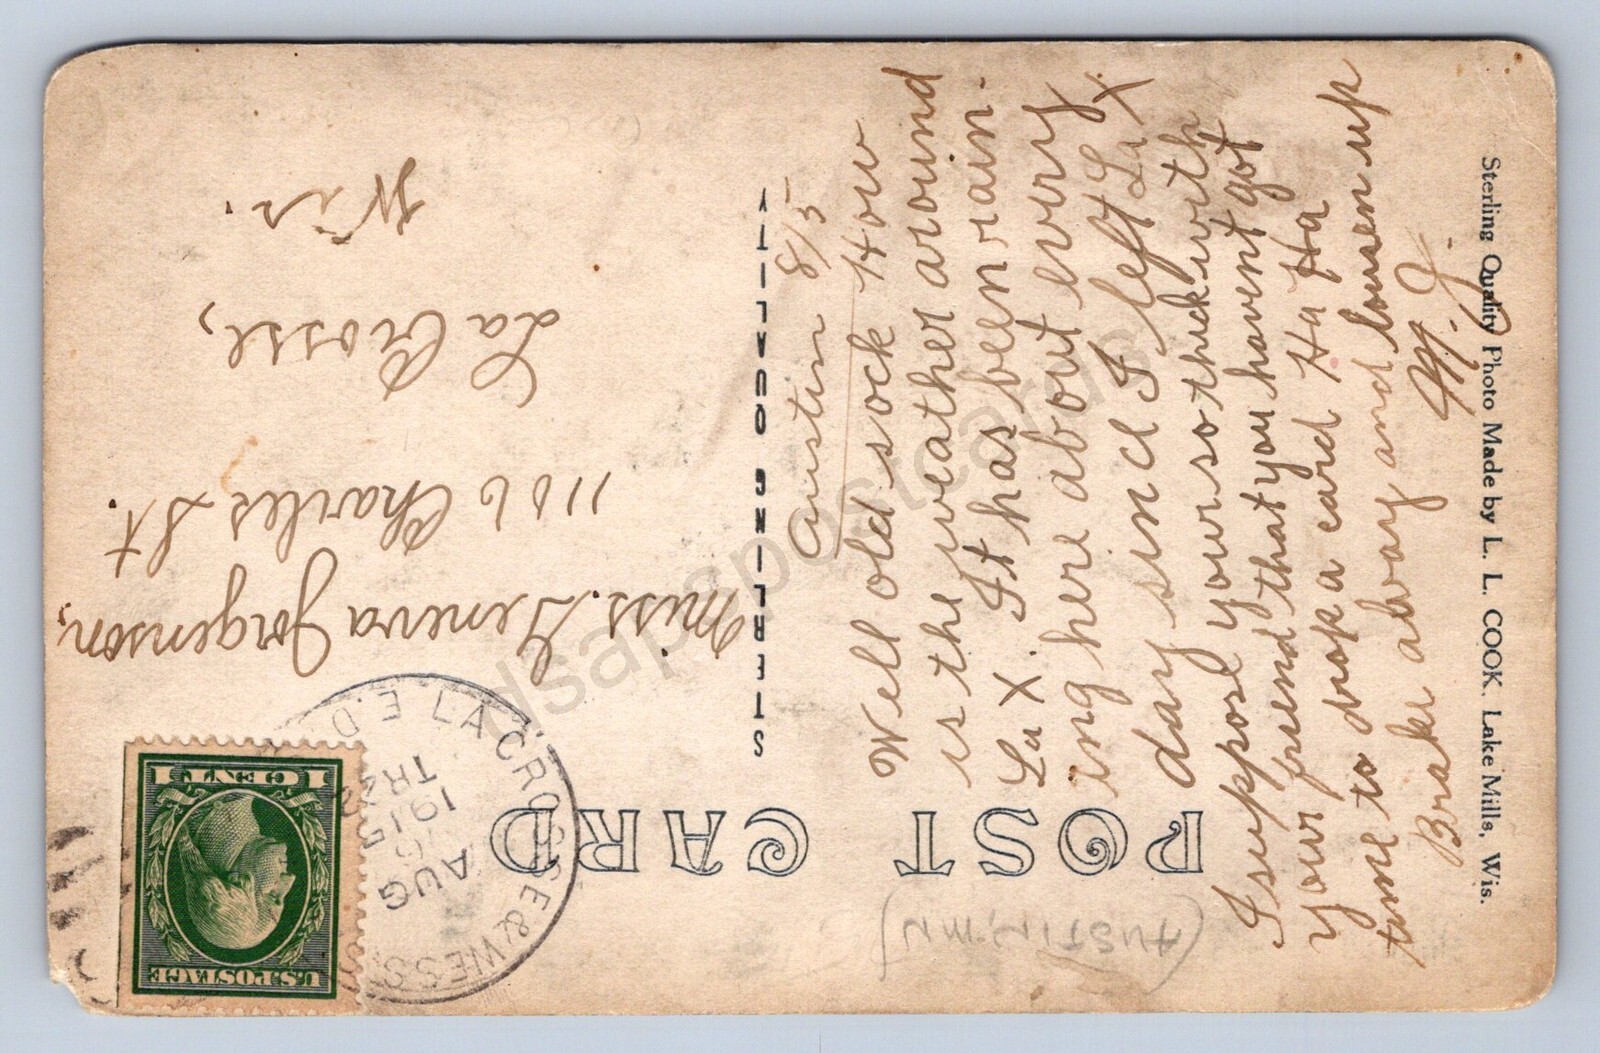 POST CARD
STERLING QUALITY
Austin 8/5
Well old sock How
is the weather around
La X. It has been rain-
ing here about every
day since I left La X.
I suppose your so thick with
your friend that you havent got
time to drop a card Ha Ha
Brake away and lousen up
M. J.
Sterling Quality Photo Made by L. L. COOK, Lake Mills, Wis.
Miss. Geneva Jorgenson,
1106 Charles St.
La Crosse,
Wis.
U.S. POSTAGE
1 CENT 1
LA CROSSE & WESS
E.D.
AUG
1915
TR 32
(AUSTIN, MN)
dsapspostcards